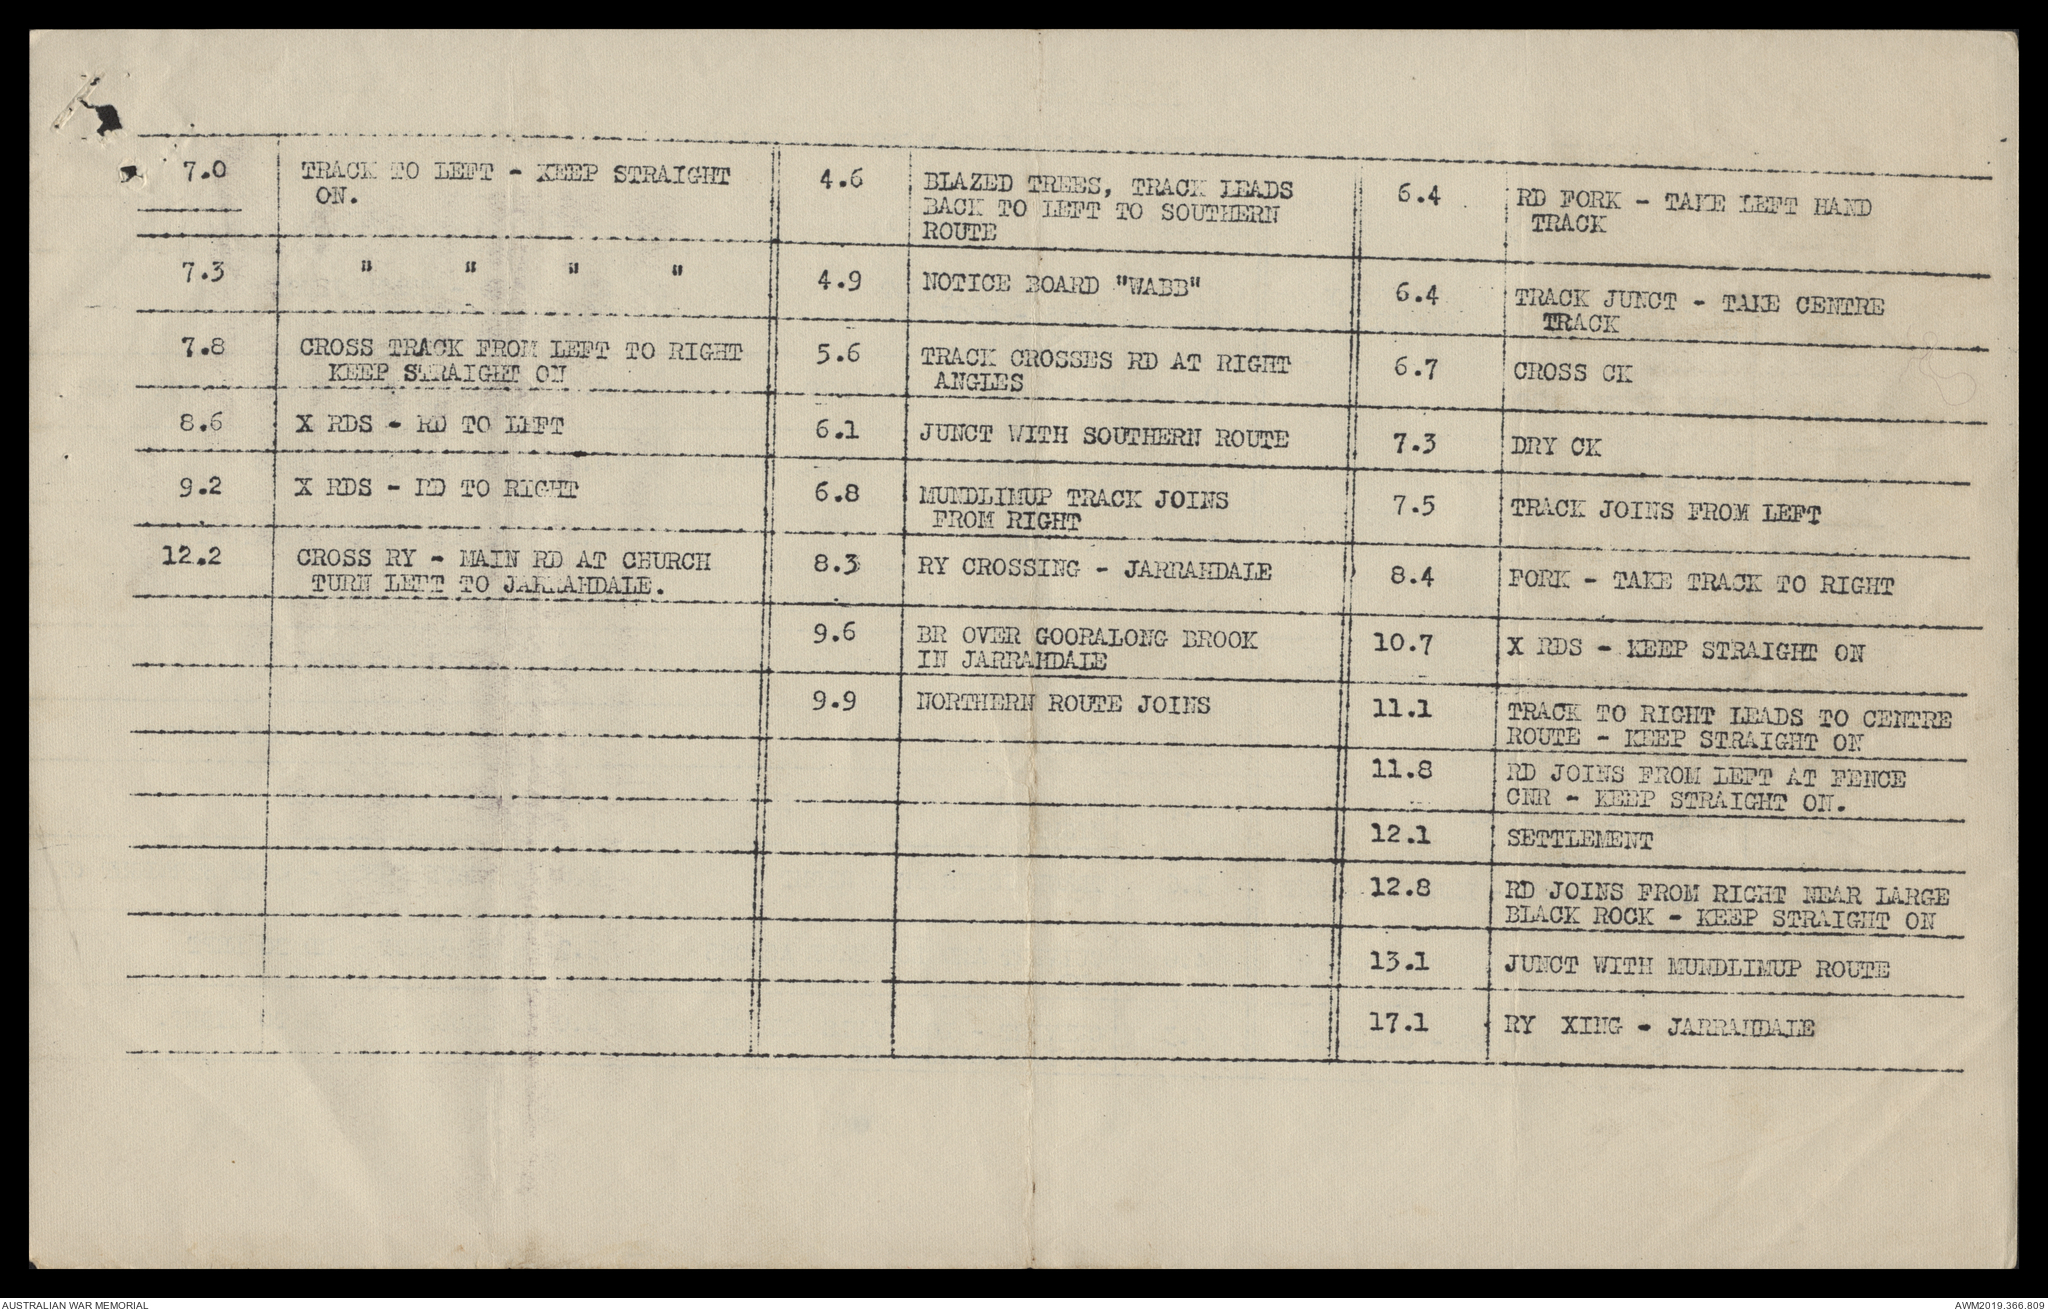 7.0 TRACK TO LEFT - KEEP STRAIGHT
ON.
7.3 " " " "
7.8 CROSS TRACK FROM LEFT TO RIGHT
KEEP STRAIGHT ON
8.6 X RDS - RD TO LEFT
9.2 X RDS - RD TO RIGHT
12.2 CROSS RY - MAIN RD AT CHURCH
TURN LEFT TO JARRAHDALE.
4.6 BLAZED TREES, TRACK LEADS
BACK TO LEFT TO SOUTHERN
ROUTE
4.9 NOTICE BOARD "WABB"
5.6 TRACK CROSSES RD AT RIGHT
ANGLES
6.1 JUNCT WITH SOUTHERN ROUTE
6.8 MUNDLIMUP TRACK JOINS
FROM RIGHT
8.3 RY CROSSING - JARRAHDALE
9.6 BR OVER GOORALONG BROOK
IN JARRAHDALE
9.9 NORTHERN ROUTE JOINS
6.4 RD FORK - TAKE LEFT HAND
TRACK
6.4 TRACK JUNCT - TAKE CENTRE
TRACK
6.7 CROSS CK
7.3 DRY CK
7.5 TRACK JOINS FROM LEFT
8.4 FORK - TAKE TRACK TO RIGHT
10.7 X RDS - KEEP STRAIGHT ON
11.1 TRACK TO RIGHT LEADS TO CENTRE
ROUTE - KEEP STRAIGHT ON
11.8 RD JOINS FROM LEFT AT FENCE
CNR - KEEP STRAIGHT ON.
12.1 SETTLEMENT
12.8 RD JOINS FROM RIGHT NEAR LARGE
BLACK ROCK - KEEP STRAIGHT ON
13.1 JUNCT WITH MUNDLIMUP ROUTE
17.1 RY XING - JARRAHDALE
AUSTRALIAN WAR MEMORIAL
AWM2019.366.809